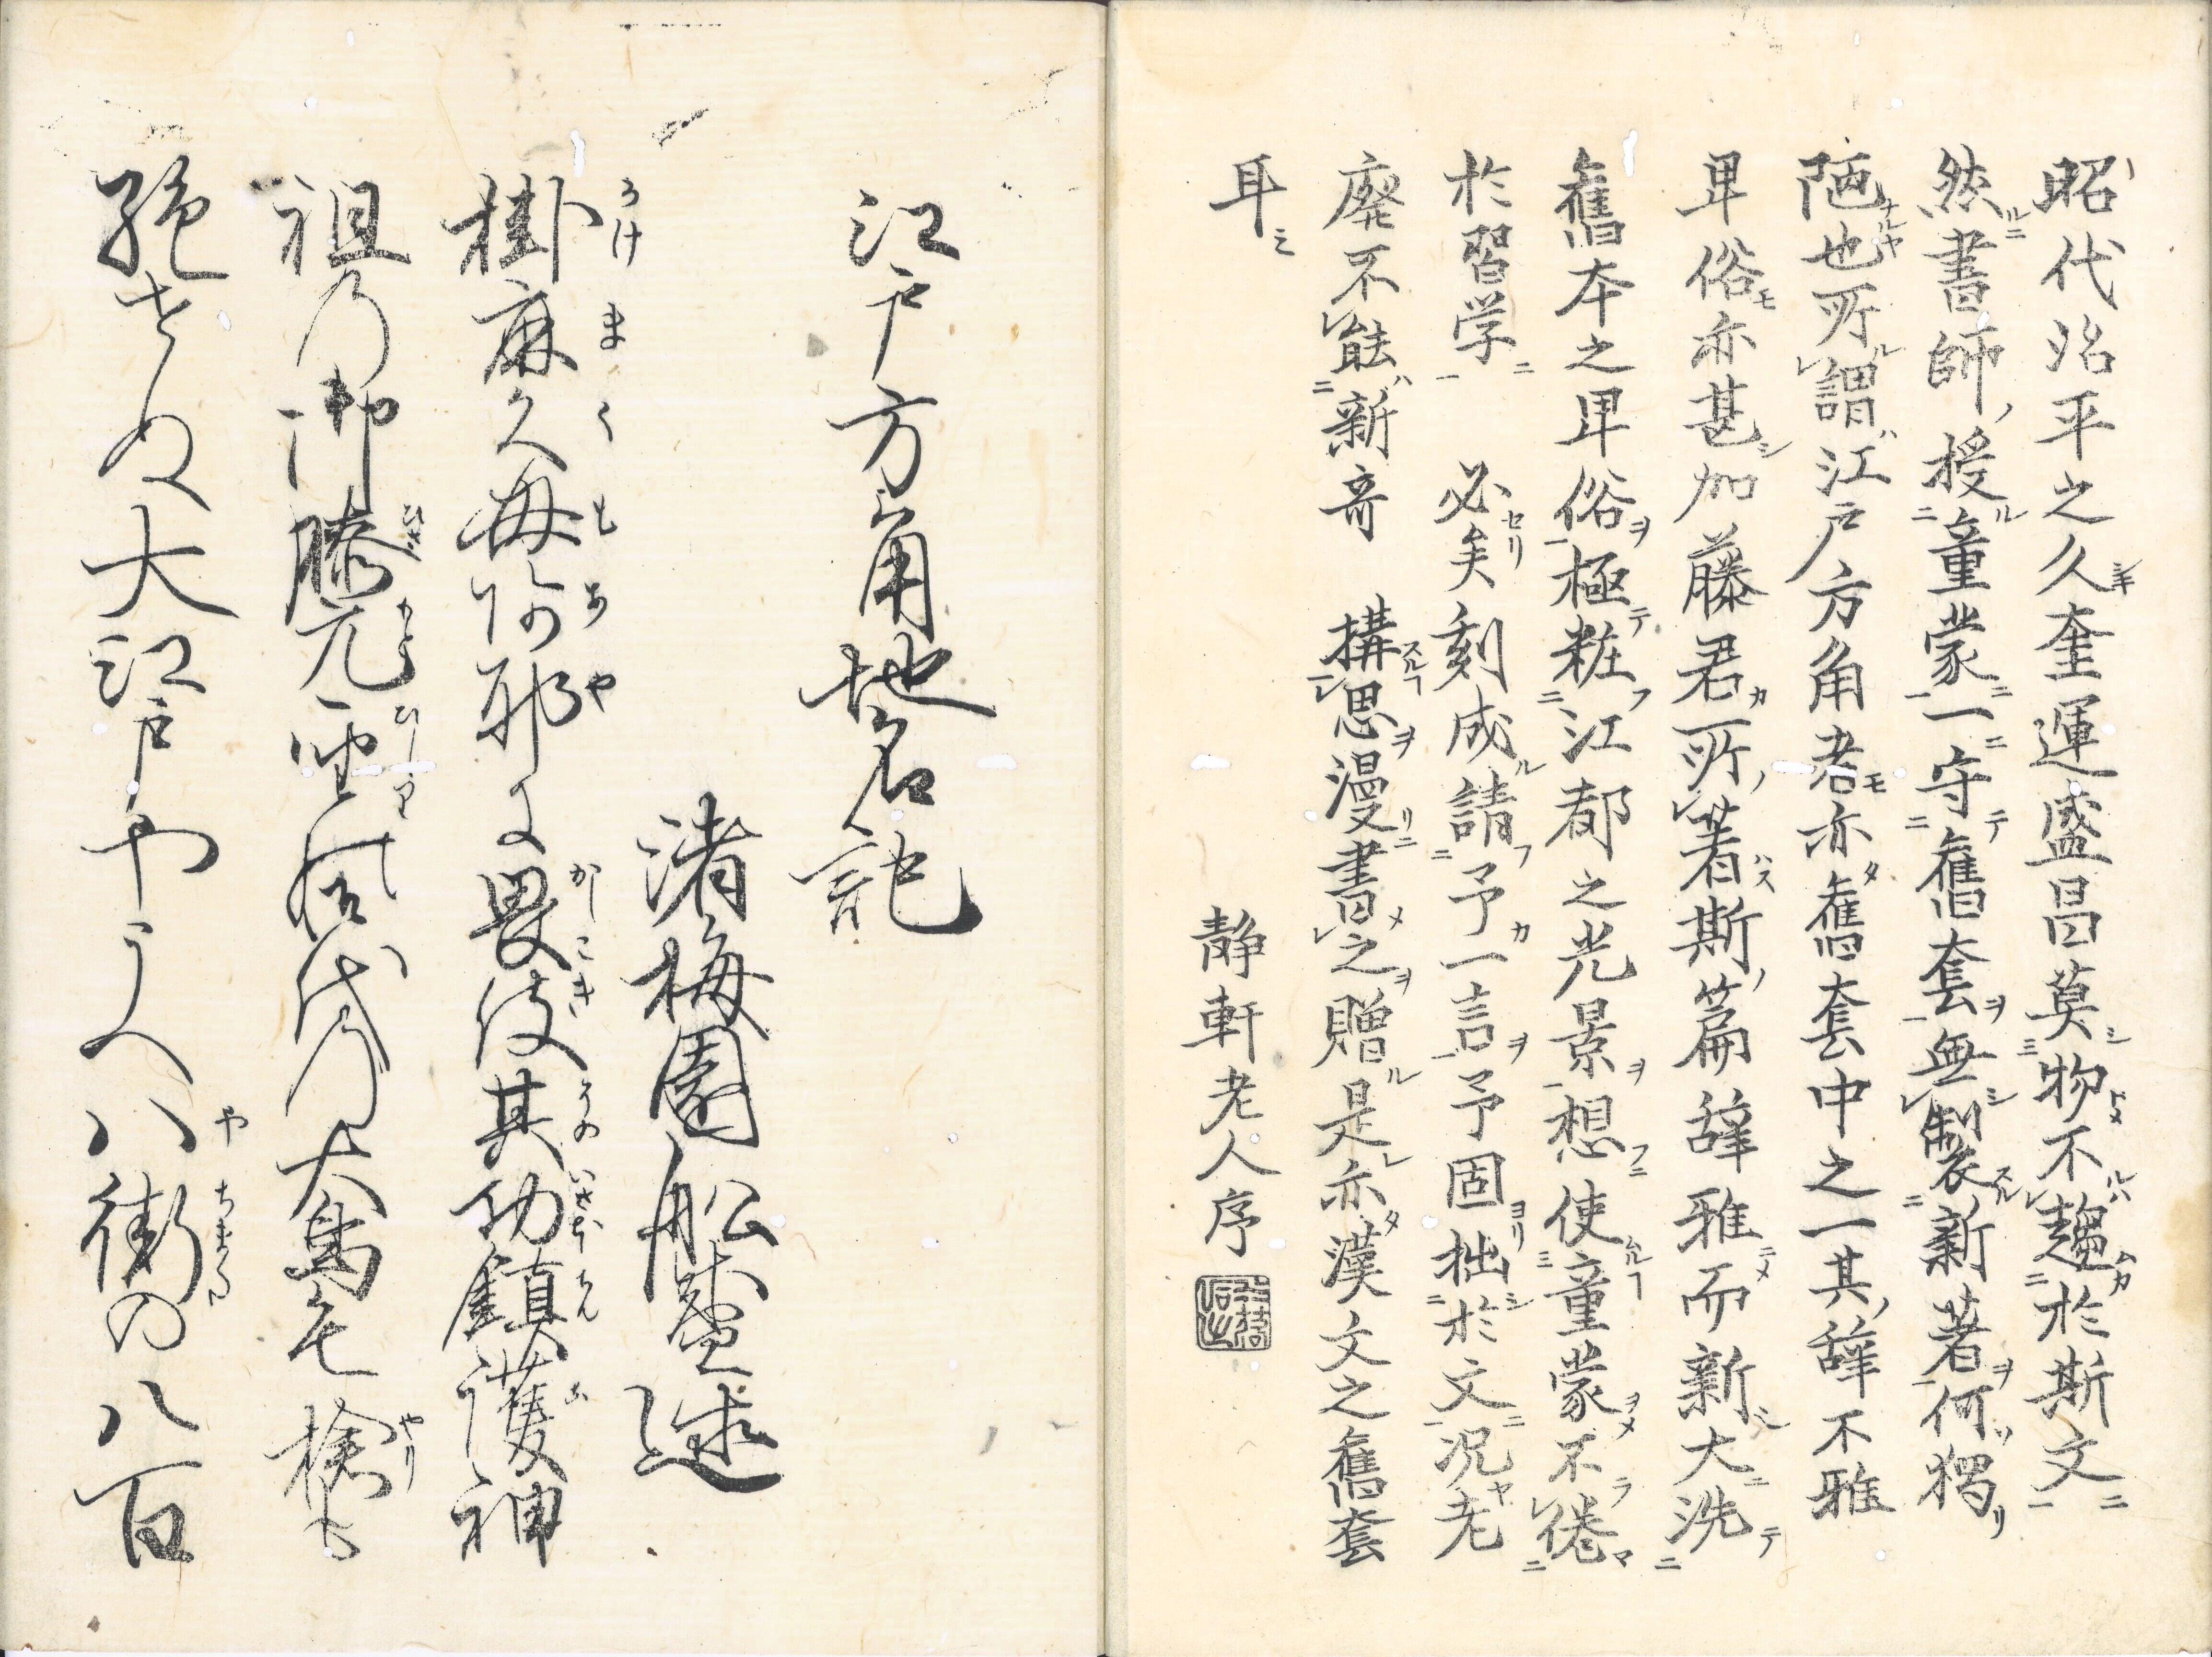 昭代治平之久奎運盛昌莫物不趨於斯文
然書師授童蒙一守舊套無製新著何獨
陋也所謂江戸方角者亦舊套中之一其辞不雅
卑俗亦甚加藤君所著斯篇辞雅而新大洗
舊本之卑俗極粧江都之光景想使童蒙不倦
於習学必矣刻成請予一言予固拙於文况老
廃不能新奇構思漫書之贈是亦漢文之舊套
耳
静軒老人序
江戸方角地名記
渚梅園船盛述
掛麻久毎阿耶に畏伎其功鎮護神
祖乃御膝元聖風代乃大鳥毛槍も
絶せぬ大江戸やうへ八街の八百